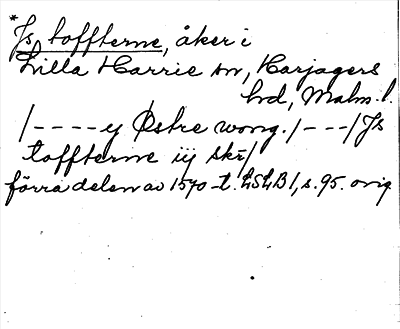 * Js toffterne, åker i
Lilla Harrie sn, Harjagers
hd, Malm. l.
/----y Østre wong./---/Js
toffterne iij skr̄/
förra delen av 1570-t. LSLB1, s. 95. orig